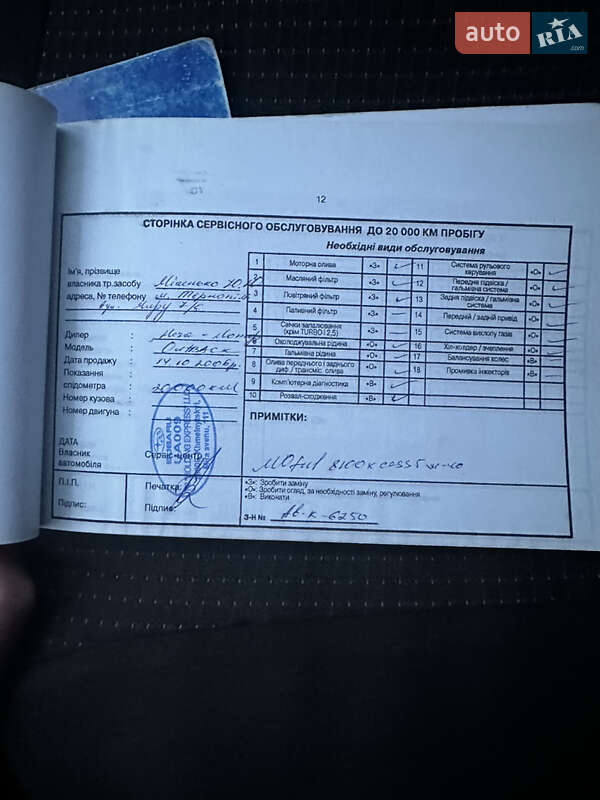 auto RIA .com
12
СТОРІНКА СЕРВІСНОГО ОБСЛУГОВУВАННЯ ДО 20 000 КМ ПРОБІГУ
Необхідні види обслуговування
Ім'я, прізвище
власника тр.засобу
адреса, № телефону м.
Дилер :
Модель :
Дата продажу :
Показання
спідометра : 20000 км
Номер кузова :
Номер двигуна :
ДАТА
Власник Сервіс-центр
автомобіля
П.І.П. Печатка:
Підпис: Підпис:
SUBARU
UA009
1 Моторна олива «З»
2 Масляний фільтр «З»
3 Повітряний фільтр «З»
4 Паливний фільтр «З»
5 Свічки запалювання (крім TURBO і 2,5) «З»
6 Охолоджувальна рідина «О»
7 Гальмівна рідина «О»
8 Олива переднього і заднього диф./ трансміс. олива «О»
9 Комп'ютерна діагностика «В»
10 Розвал-сходження «В»
11 Система рульового керування «О»
12 Передня підвіска / гальмівна система «О»
13 Задня підвіска / гальмівна система «О»
14 Передній / задній привід «О»
15 Система вихлопу газів «О»
16 Хіл-холдер / зчеплення «О»
17 Балансування коліс «В»
18 Промивка інжекторів «В»
ПРИМІТКИ:
«З»: Зробити заміну
«О»: Зробити огляд, за необхідності заміну, регулювання
«В»: Виконати
З-Н № АВ-К-6250